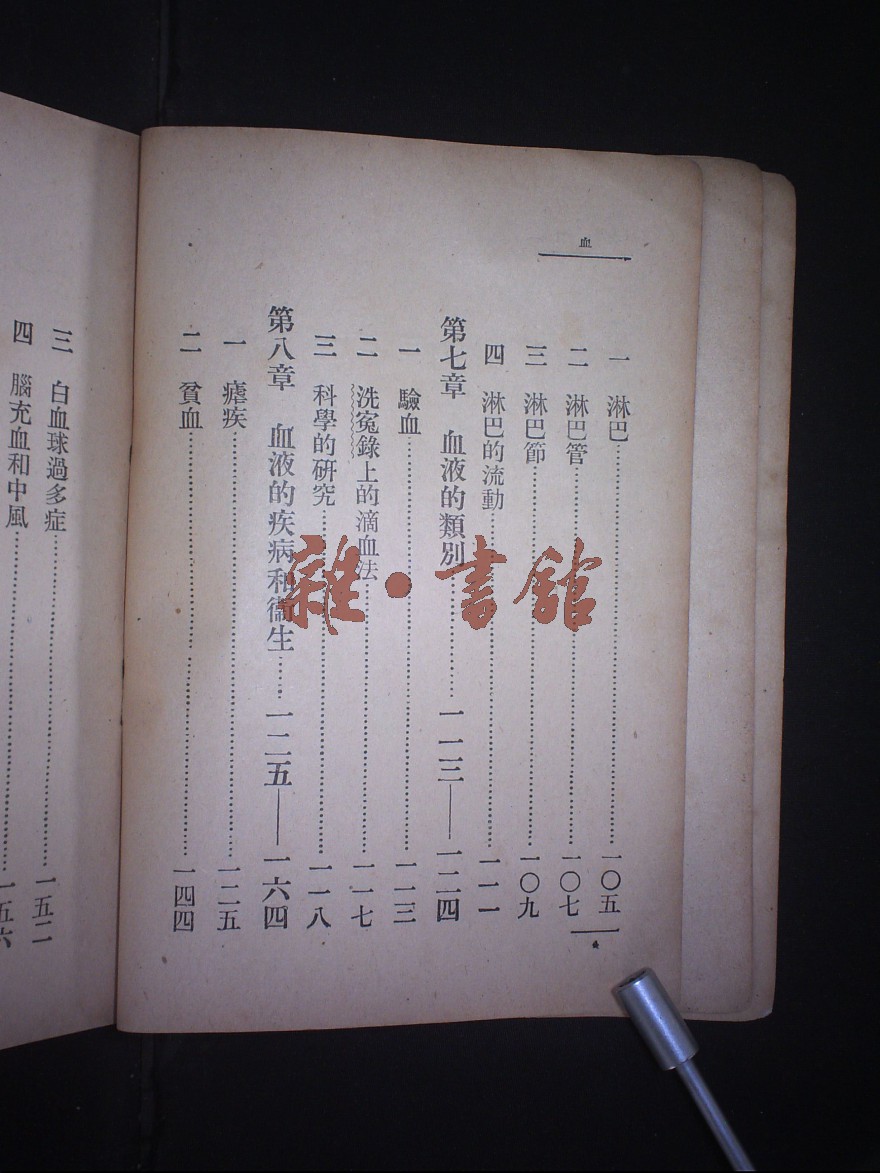 血
一　淋巴……一〇五
二　淋巴管……一〇七
三　淋巴節……一〇九
四　淋巴的流動……一一一
第七章　血液的類別……一一三——一二四
一　驗血……一一三
二　洗冤錄上的滴血法……一一七
三　科學的硏究……一一八
第八章　血液的疾病和衞生……一二五——一六四
一　瘧疾……一二五
二　貧血……一四四
三　白血球過多症……一五二
四　腦充血和中風……一五六
雜·書館